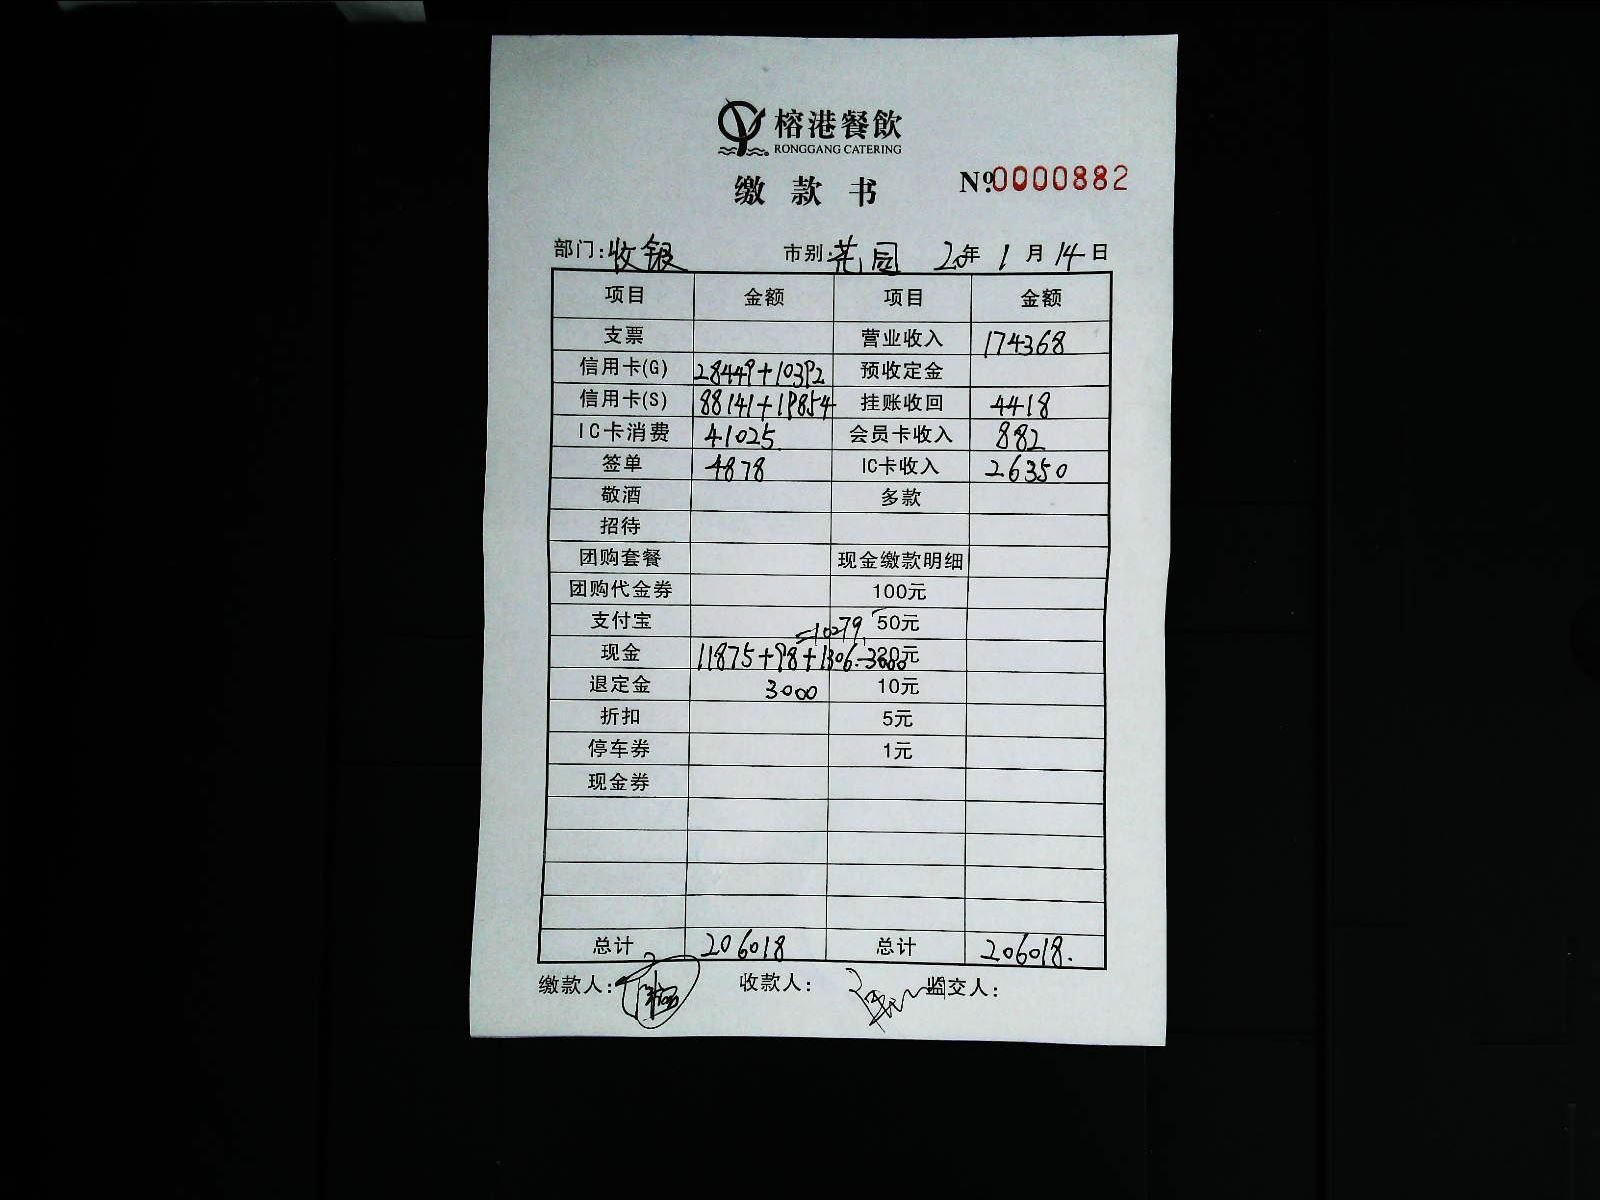 榕港餐飲
RONGGANG CATERING
缴款书 №0000882
部门:收银 市别:花园 20年1月14日
项目 金额 项目 金额
支票 营业收入 174368
信用卡(G) 28449+10392 预收定金
信用卡(S) 88141+19854 挂账收回 4418
IC卡消费 41025 会员卡收入 882
签单 4878 IC卡收入 26350
敬酒 多款
招待
团购套餐 现金缴款明细
团购代金券 100元
支付宝 =10279 50元
现金 11875+98+1306-3000 20元
退定金 3000 10元
折扣 5元
停车券 1元
现金券
总计 206018 总计 206018.
缴款人: 收款人: 监交人: